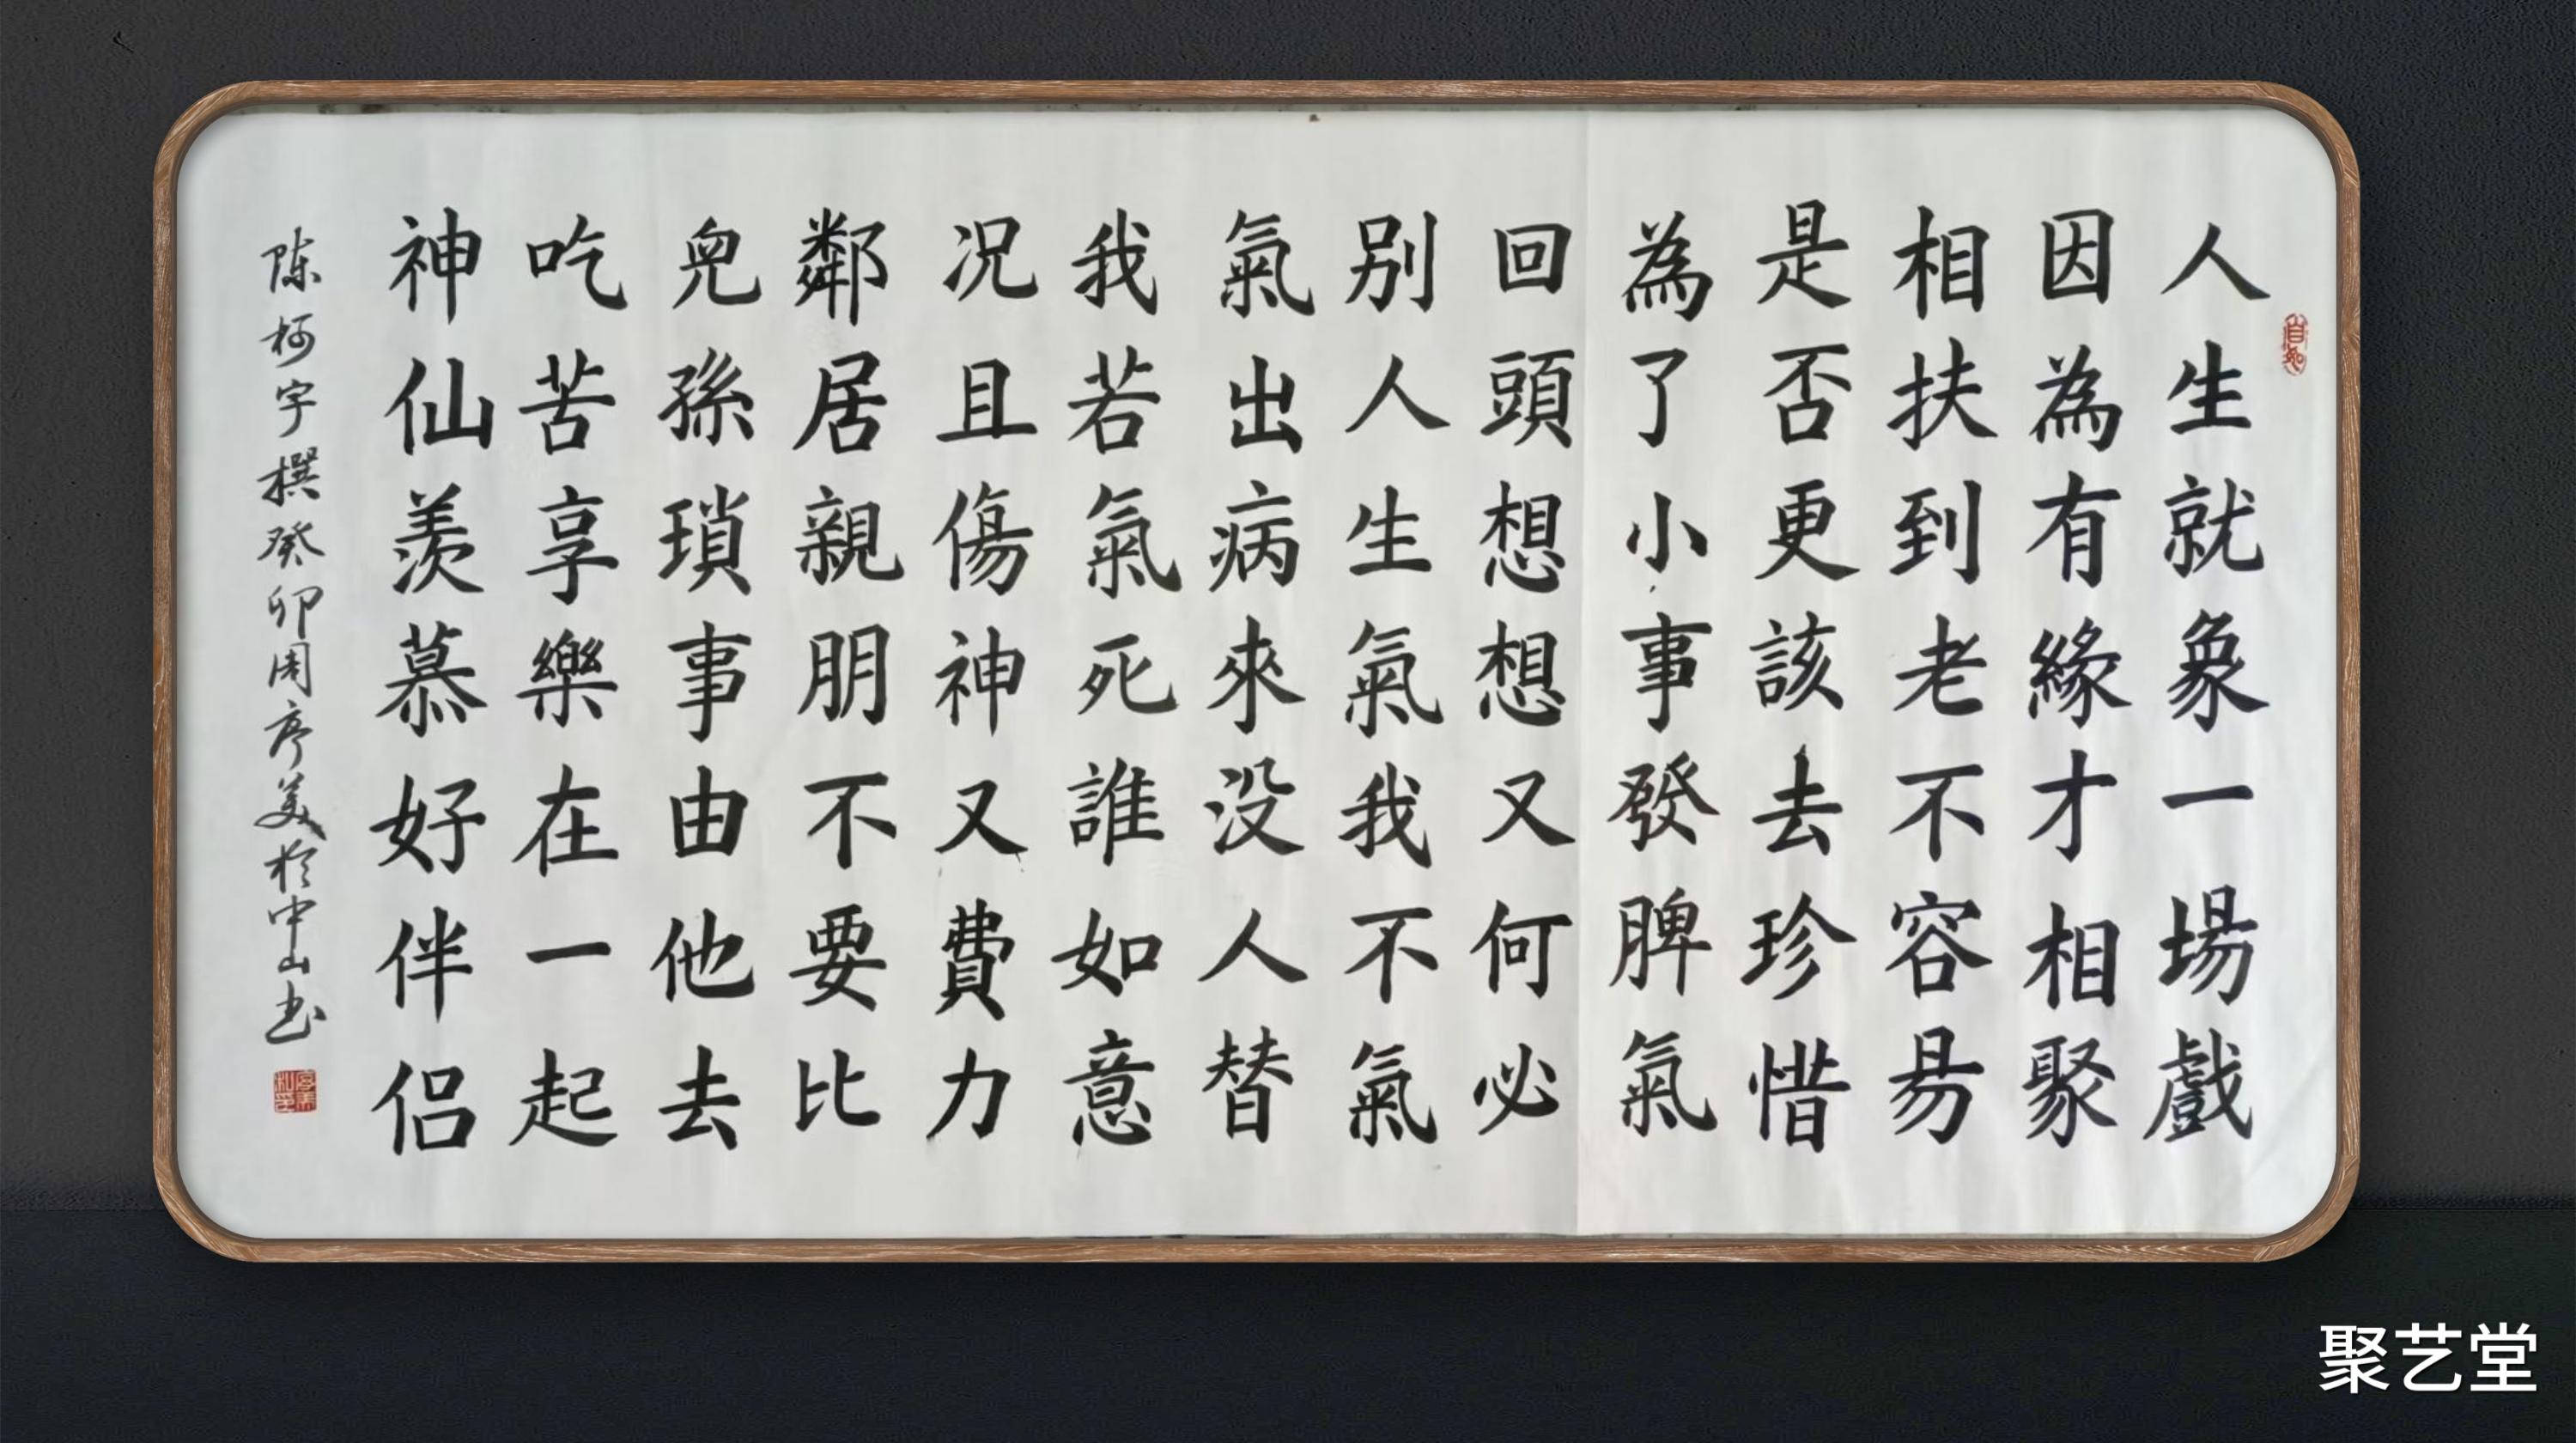 自知
人生就象一場戲
因為有緣才相聚
相扶到老不容易
是否更該去珍惜
為了小事發脾氣
回頭想想又何必
别人生氣我不氣
氣出病來没人替
我若氣死誰如意
况且傷神又費力
鄰居親朋不要比
兒孫瑣事由他去
吃苦享樂在一起
神仙羡慕好伴侣
陈柯宇撰癸卯周美於中山书
聚艺堂